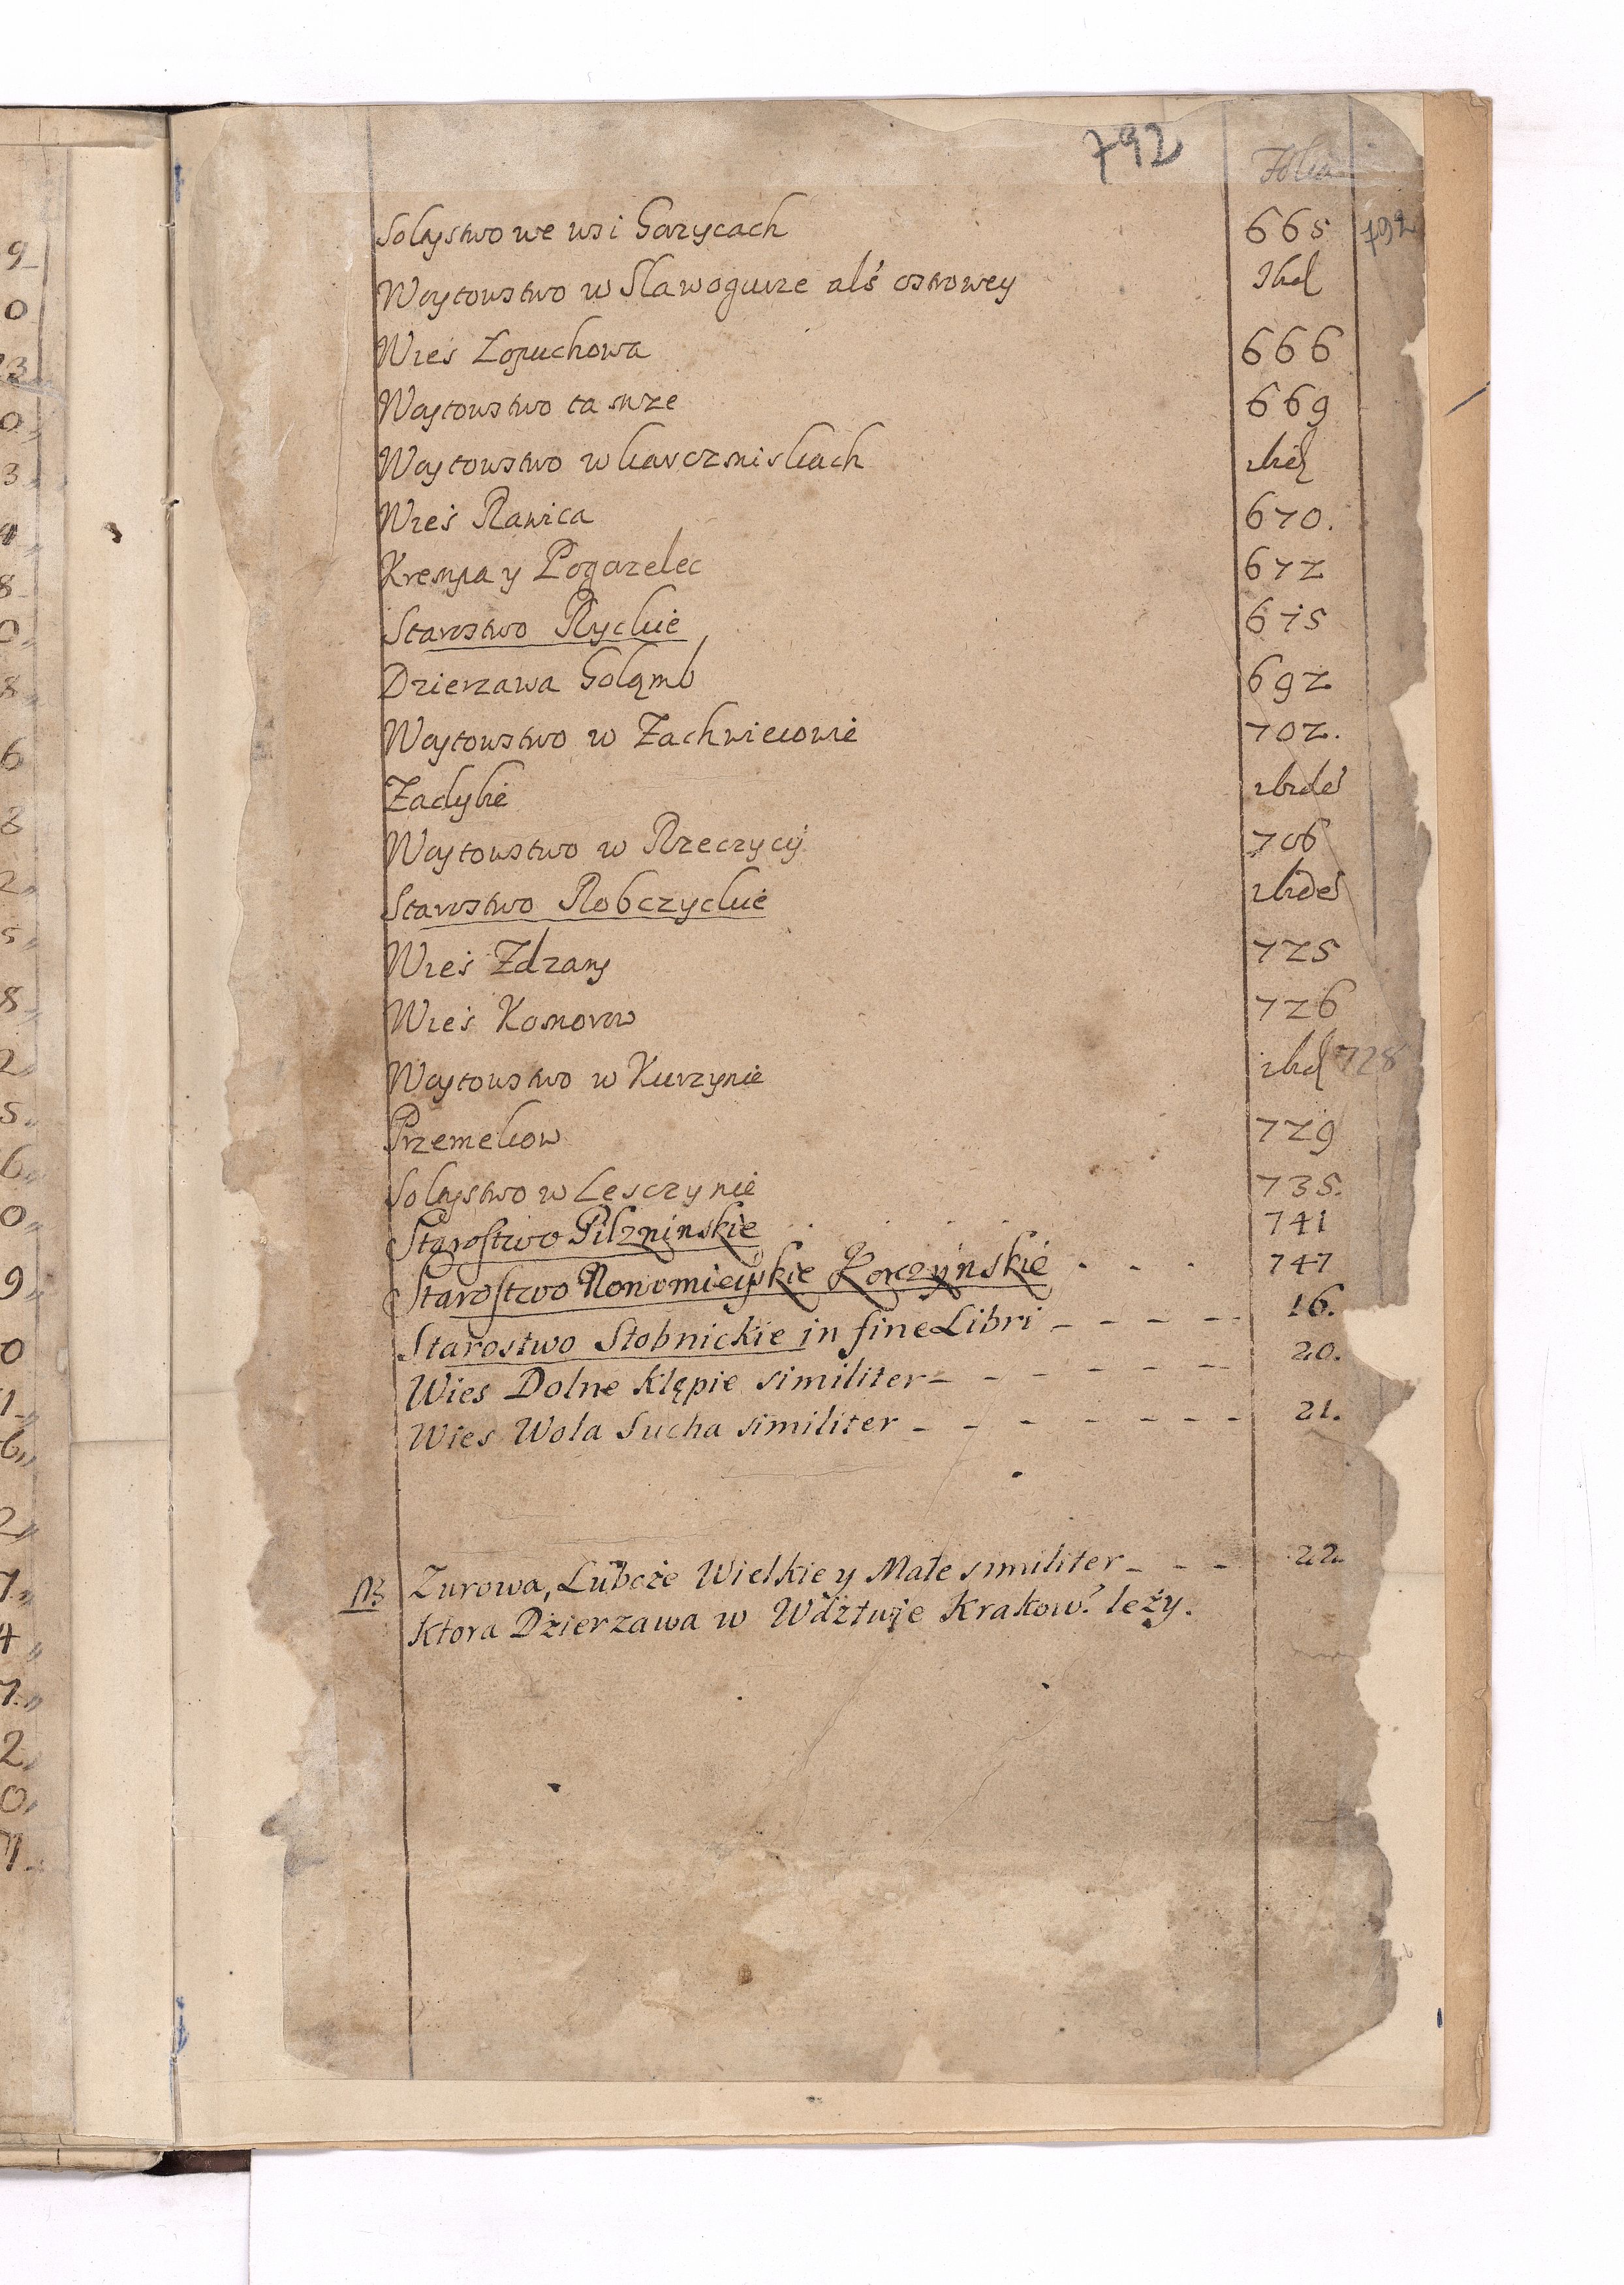 792
Folia
Soltystwo we wsi Garzycach 665 792
Woytowstwo w Slawogurze als ostrowey Ibd
Wies Lopuchowa 666
Woytowstwo ta mze 669
Woytowstwo w karczmiskach ibid
Wieś Rawica 670.
Krempa y Pogorzelec 672
Starostwo Ryckie 675
Dzierzawa Goląmb 692
Woytowstwo w Zachwieiowie 702.
Zadybie ibidē
Woytowstwo w Rzeczycy 706
Starostwo Robczyckie ibidē
Wieś Zdzary 725
Wieś Komorow 726
Woytowstwo w Kurzynie ibd 728
Przemekow 729
Soltystwo w Lesczynie 735.
Starostwo Pilzninskie 741
Starostwo Nowomieyskie Korczyńskie . . . 747
Starostwo Stobnickie in fine Libri - - - - - 16.
Wies Dolne Klępie similiter - - - - - - 20.
Wies Wola Sucha similiter - - - - - - - 21.
Zurowa, Lubcże Wielkie y Małe similiter - - - 22
NB Ktora Dzierzawa w Wdztwie Krakow? leży.